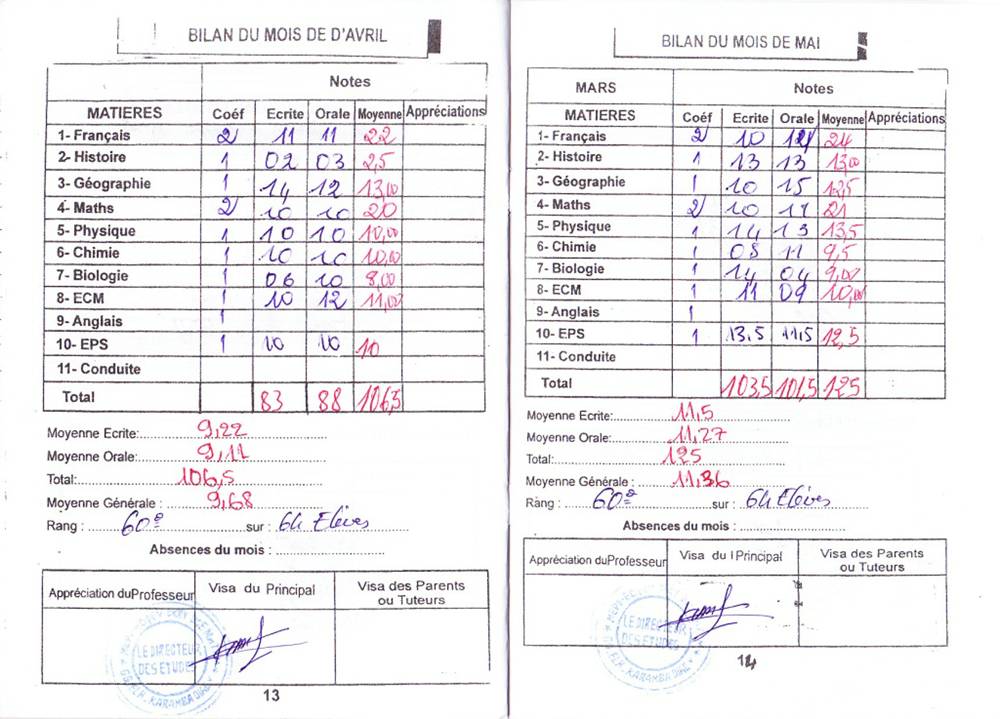 BILAN DU MOIS DE D'AVRIL
Notes
MATIERES Coéf Ecrite Orale Moyenne Appréciations
1- Français 2 11 11 22
2- Histoire 1 02 03 2,5
3- Géographie 1 14 12 13,00
4- Maths 2 10 10 20
5- Physique 1 10 10 10,00
6- Chimie 1 10 10 10,00
7- Biologie 1 06 10 8,00
8- ECM 1 10 12 11,00
9- Anglais 1
10- EPS 1 10 10 10
11- Conduite
Total 83 88 106,5
Moyenne Ecrite: 9,22
Moyenne Orale: 9,11
Total: 106,5
Moyenne Générale : 9,68
Rang : 60e sur : 64 Elèves
Absences du mois :
Appréciation du Professeur Visa du Principal Visa des Parents
ou Tuteurs
LE DIRECTEUR
DES ETUDES
KARAMBA
13
BILAN DU MOIS DE MAI
MARS Notes
MATIERES Coéf Ecrite Orale Moyenne Appréciations
1- Français 2 10 24
2- Histoire 1 13 13 13,00
3- Géographie 1 10 15 12,5
4- Maths 2 10 11 21
5- Physique 1 14 13 13,5
6- Chimie 1 08 11 9,5
7- Biologie 1 14 04 9,00
8- ECM 1 11 09 10,00
9- Anglais 1
10- EPS 1 13,5 11,5 12,5
11- Conduite
Total 103,5 101,5 125
Moyenne Ecrite: 11,5
Moyenne Orale: 11,27
Total: 125
Moyenne Générale : 11,36
Rang : 60e sur : 64 Elèves
Absences du mois :
Appréciation du Professeur Visa du Principal Visa des Parents
ou Tuteurs
LE DIRECTEUR
DES ETUDES
KARAMBA
14